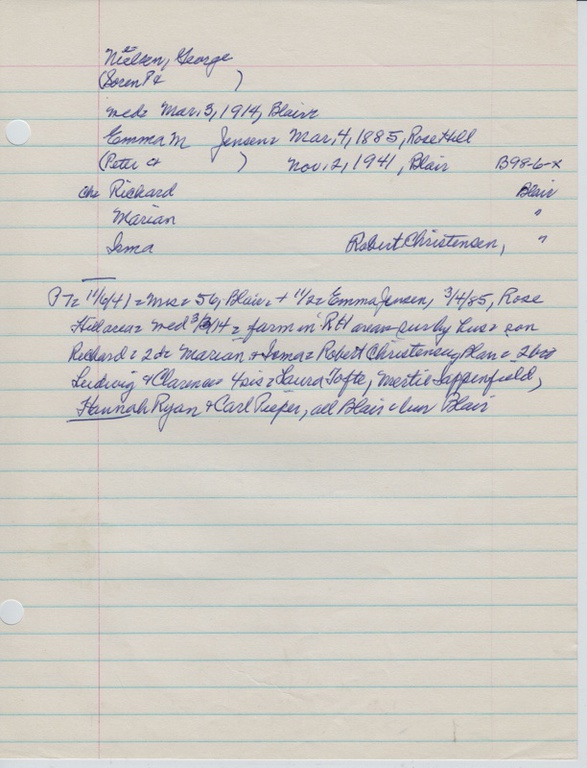 Nielsen, George
(Soren P & )
wed = Mar, 3, 1914, Blair
Emma M Jensen = Mar, 4, 1885, Rose Hill
(Peter & ) Nov, 2, 1941, Blair B98-6-X
chs Richard Blair
Marian "
Isma Robert Christensen, "
PT = 11/6/41 = Mrs = 56, Blair = + 11/2 = Emma Jensen, 3/4/85, Rose
Hill area = wed 3/3/14 = farm in RH area = sur by hus = son
Richard = 2d = Marian & Isma = Robert Christensen, Blair = 2bro
Ludwig & Clarence = 4sis = Laura Tofte, Mertie Sappenfield,
Hannah Ryan & Carl Pieper, all Blair = bur Blair